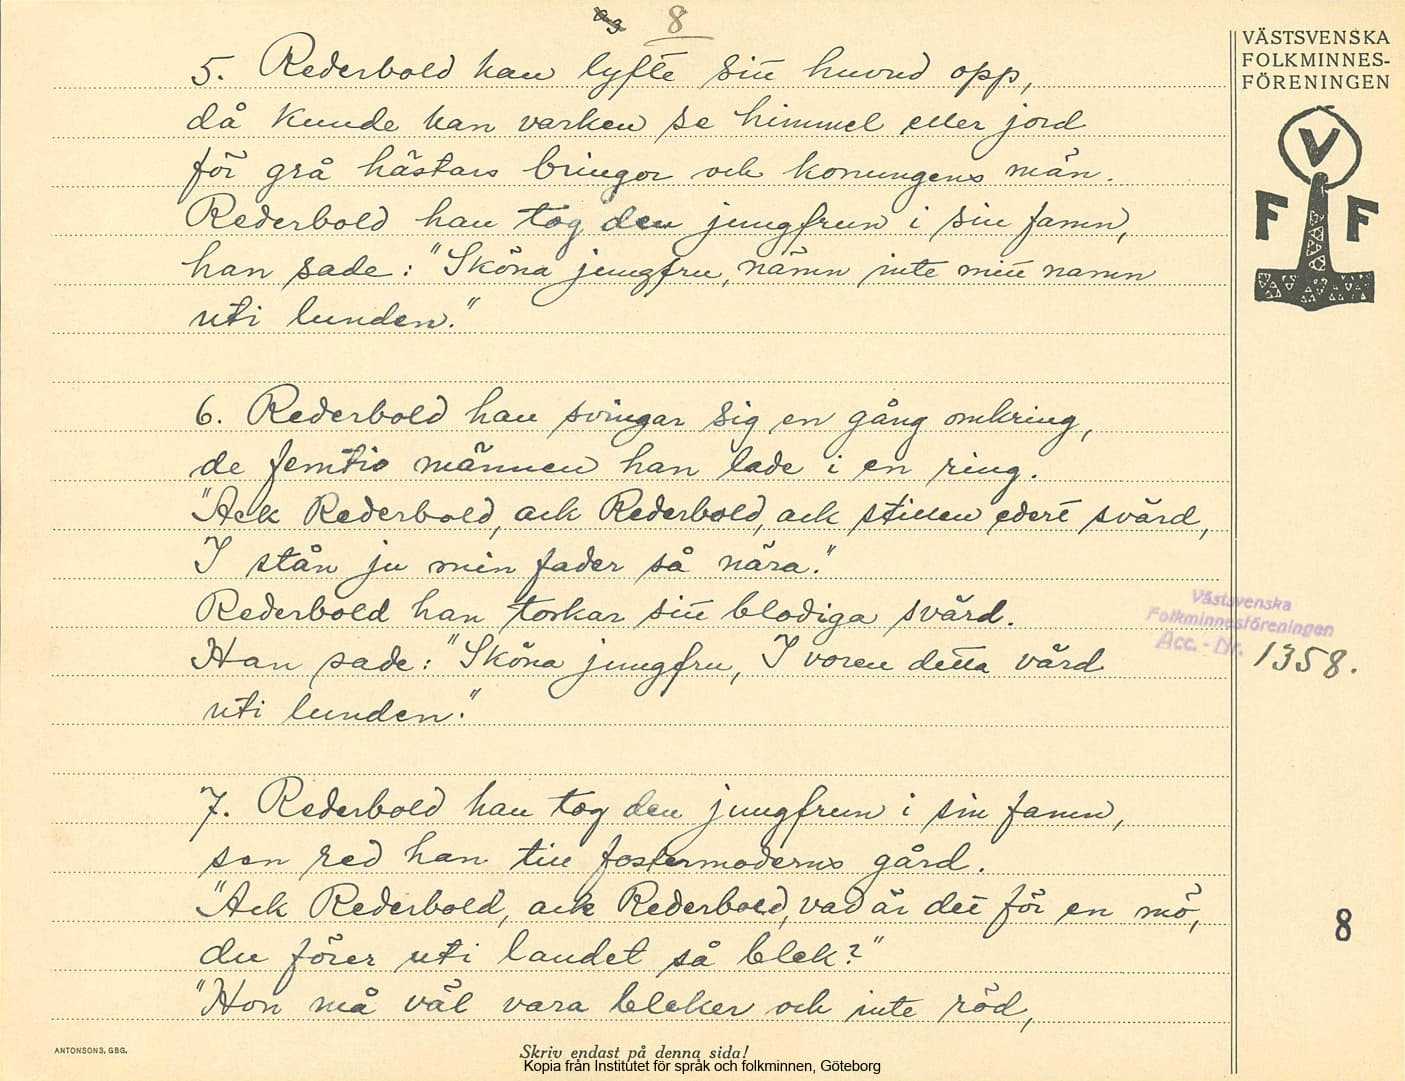 8
5. Rederbold han lyfte sitt huvud opp,
då kunde han varken se himmel eller jord
för grå hästars bringor och konungens män.
Rederbold han tog den jungfrun i sin famn,
han sade: "Sköna jungfru, nämn inte mitt namn
uti lunden."
6. Rederbold han svingar sig en gång omkring,
de femtio männen han lade i en ring.
"Ack Rederbold, ack Rederbold, ack stillen edert svärd,
I stån ju min fader så nära."
Rederbold han torkar sitt blodiga svärd.
Han sade: "Sköna jungfru, I voren detta värd
uti lunden."
7. Rederbold han tog den jungfrun i sin famn,
sen red han till fostermoderns gård.
"Ack Rederbold, ack Rederbold, vad är det för en mö,
du förer uti landet så blek?"
"Hon må väl vara bleker och inte röd,
VÄSTSVENSKA
FOLKMINNES-
FÖRENINGEN
V
F F
Västsvenska
Folkminnesföreningen
Acc. - Nr. 1358.
8
ANTONSONS, GBG.
Skriv endast på denna sida!
Kopia från Institutet för språk och folkminnen, Göteborg